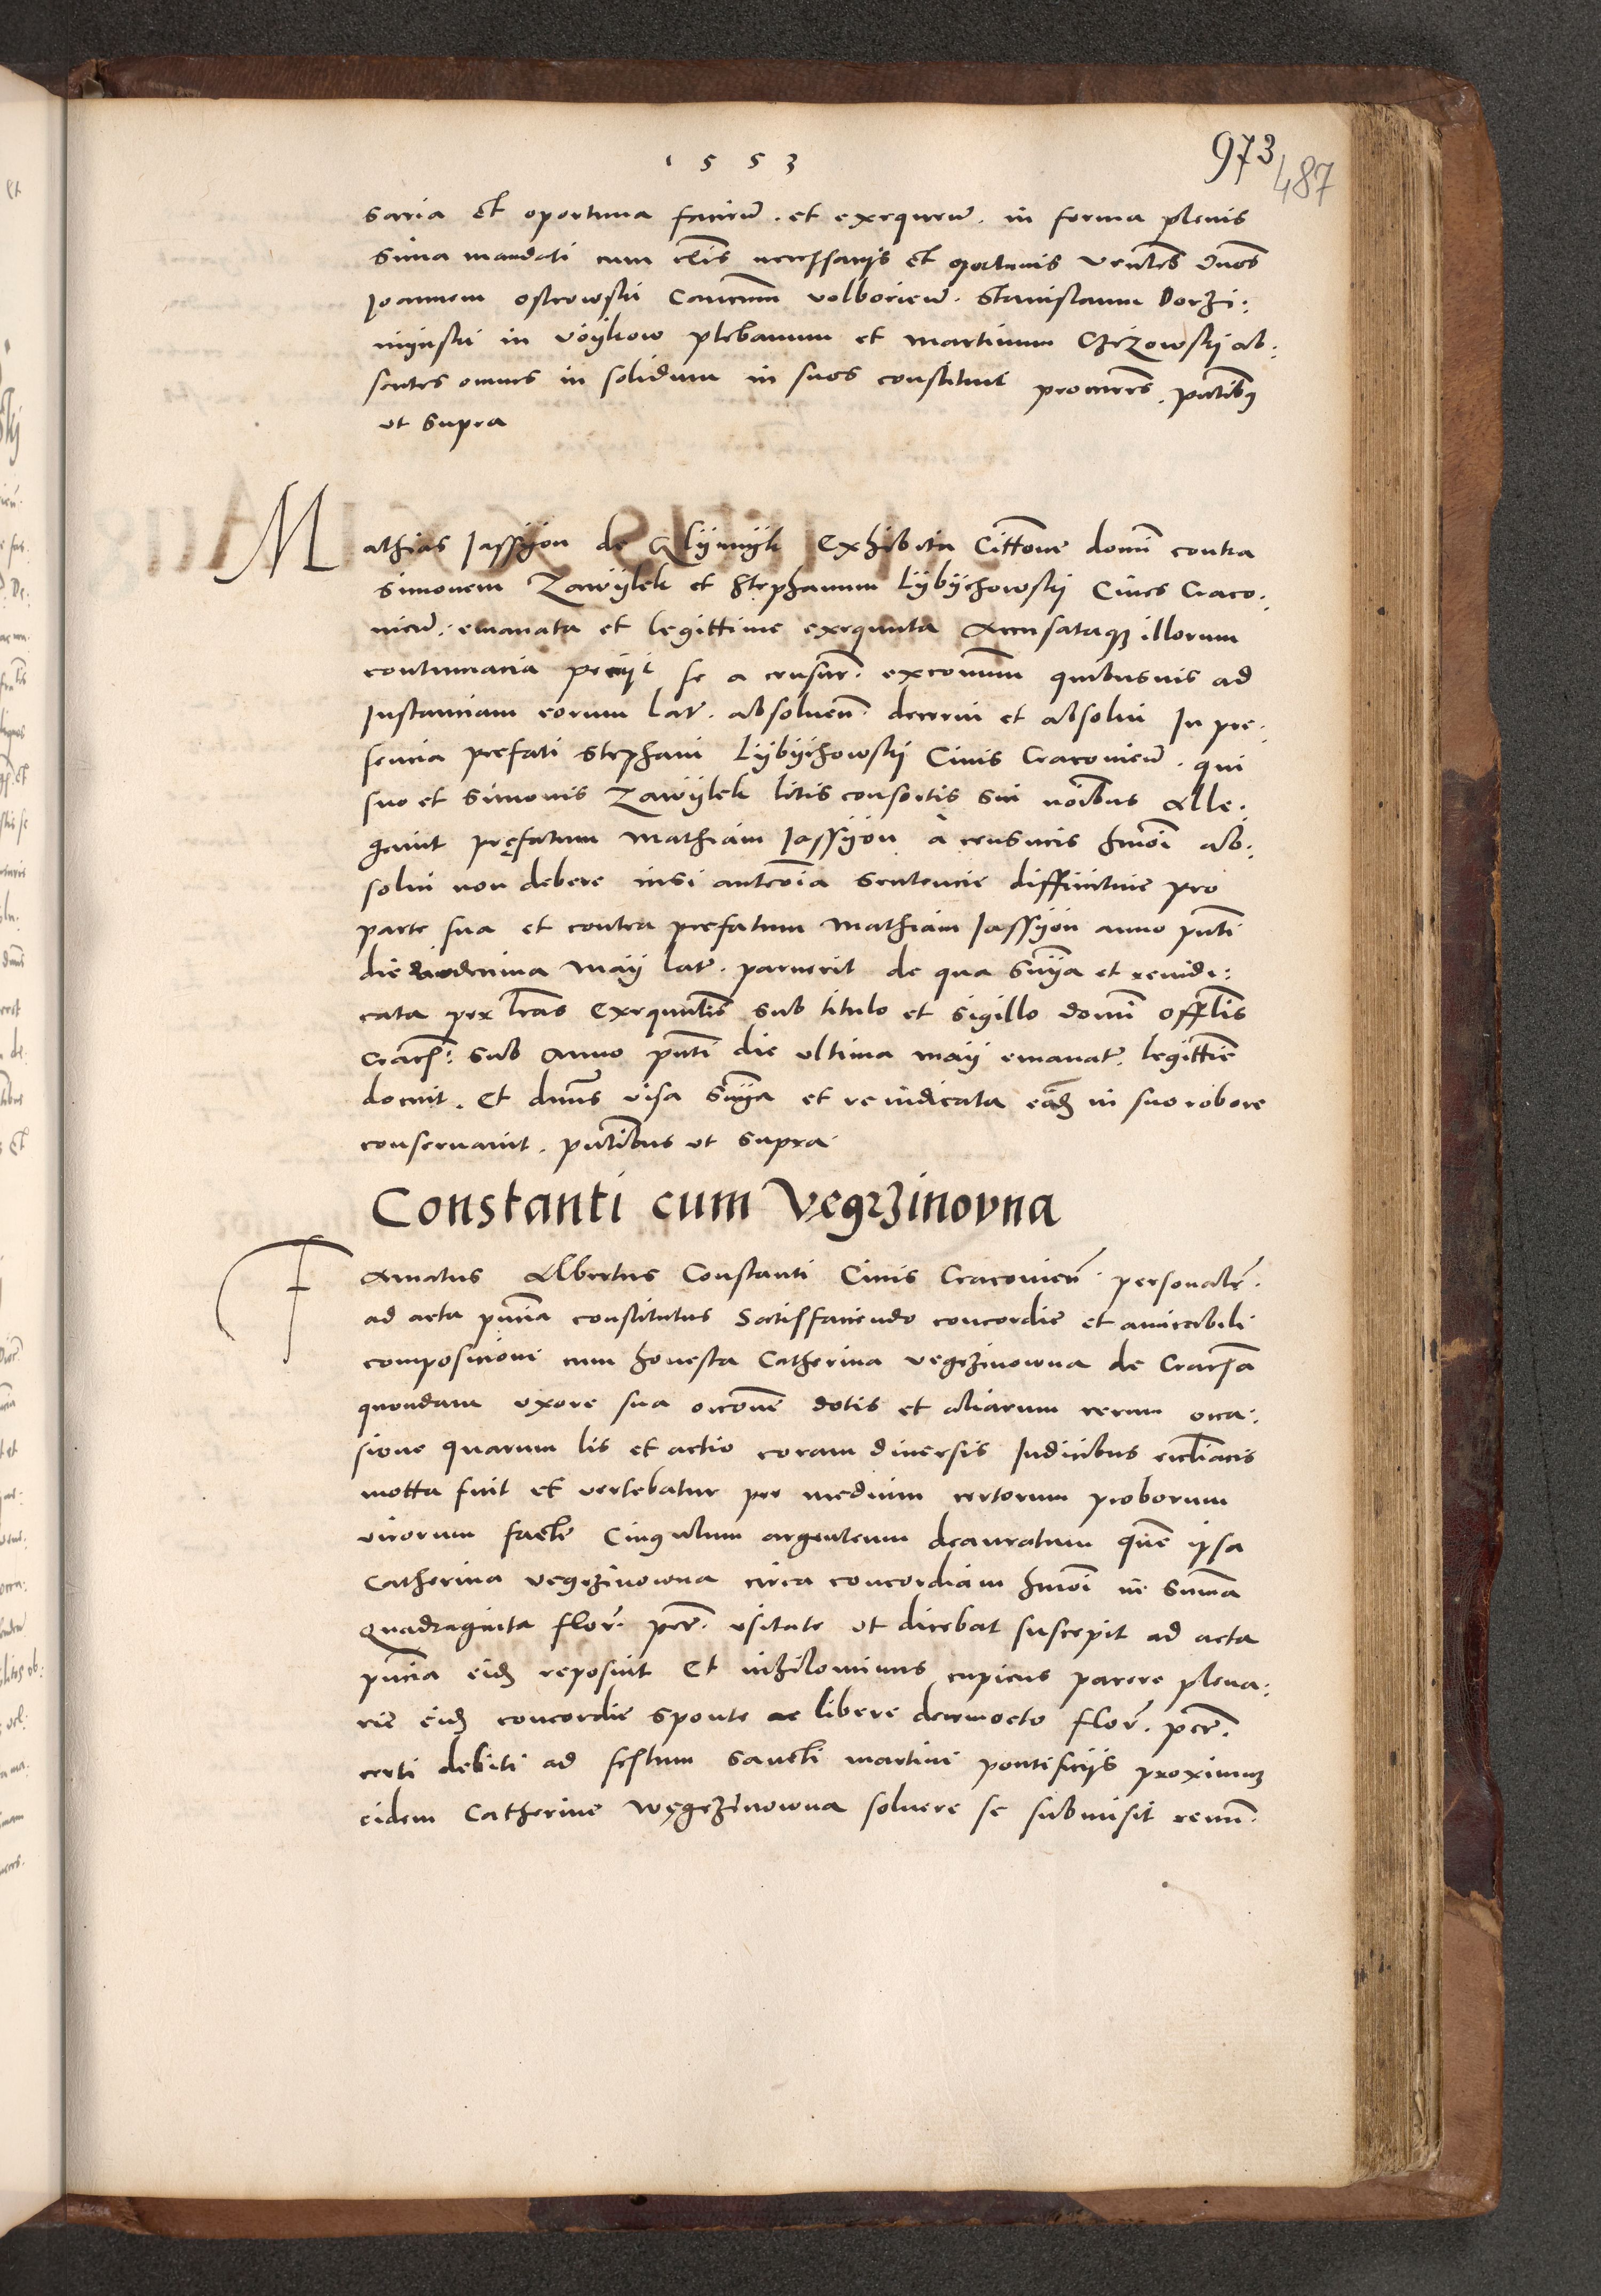 1553
973
487
saria et oportuna faciend. et exequend. in forma plenis
sima mandati cum clis necessarijs et oportunis Venles dnos
Joannem Ostrowski Cancum volboriens. Stanislaum Dorzi:
mijnski in Voykow plebanum et martinum Chrzowskij ab:
sentes omnes in solidum in suos constituit procures. pntibus
ut supra
Mathias Jassyon de Glijnnijk Exhibita Cittone domi contra
Simonem Zawijlek et Stephanum Lijbijchowskij Cives Craco:
vien. emanata et legittime exequuta Accusataque illorum
contumacia petijt se a censur. excomum quibusvis ad
Instanciam eorum lat. absolven. decerni et absolvi In pre:
sencia prefati Stephani Lijbijchowskij Civis Cracovien. qui
suo et Simonis Zawijlek litis consortis sui noibus Alle:
gavit prefatum Mathiam Jassyon a censuris hmoi ab:
solvi non debere nisi antea sentencie diffinitive pro
parte sua et contra prefatum Mathiam Jassyon anno pnti
die maij lat. paruerit de qua snia et reiudi:
cata per lras Exequutles sub titulo et sigillo domi offlis
Cracs. sub Anno pnti die ultima maij emanat. legittie
docuit. Et dnus visa snia et reiudicata eadem in suo robore
conservavit. pntibus ut supra
Constanti cum Vegrzinovna
Famatus Albertus Constanti Civis Cracovien. personalr.
ad acta pncia constitutus Satisfaciendo concordie et amicabili
composicioni cum honesta Catherina vegrzinowna de Cracovia
quondam uxore sua occone dotis et aliarum rerum occa:
sione quarum lis et actio coram diversis Judicibus ecclliacis
motta fuit et vertebatur per medium certorum proborum
virorum facte Cingulum argenteum deauratum que ipsa
Catherina vegrzinowna circa concordiam hmoi in suma
Quadraginta flor. per. usitate ut dicebat suscepit ad acta
pncia eidem reposuit Et nihilominus cupiens parere plena:
rie eidem concordie sponte ac libere decem octo flor. per.
certi debiti ad festum sancti martini pontificijs proximum
eidem Catherine Węgrzinowna solvere se submisit renun.